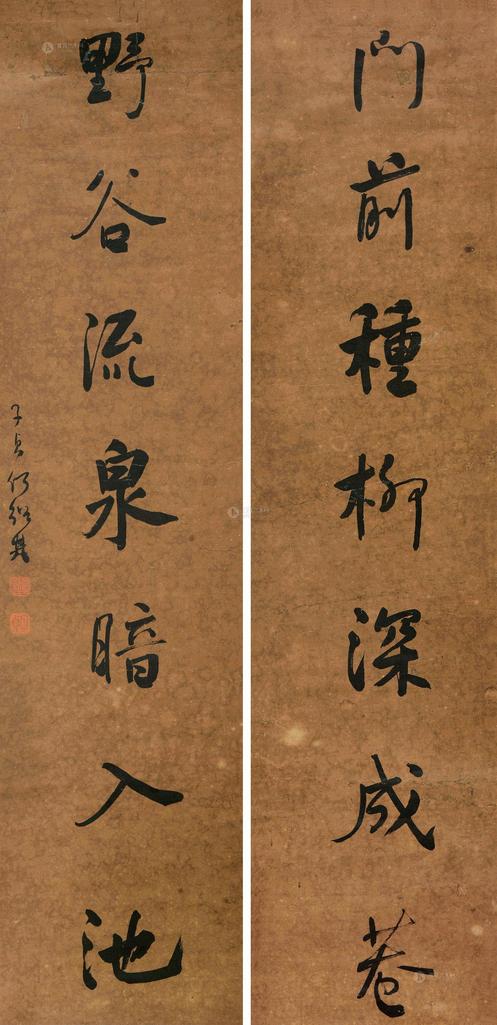 門前種柳深成巷
野谷流泉暗入池
子貞何紹基